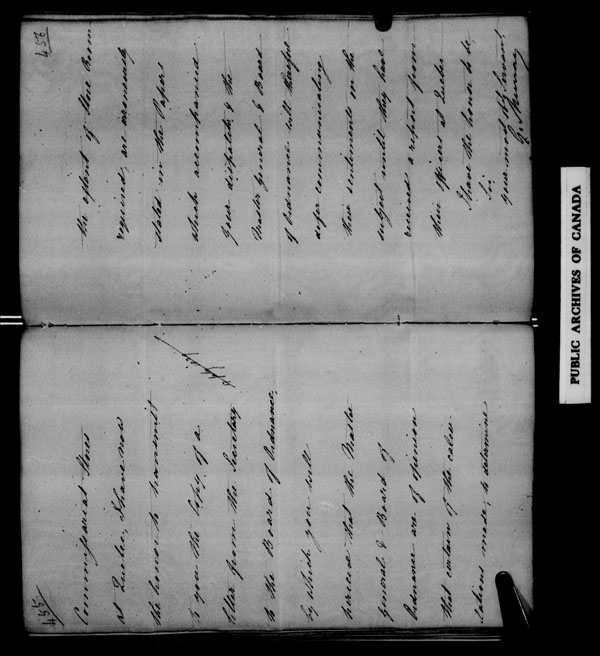 455
Commissariat Stores
at Quebec, I have now
the honor to transmit
to you the Copy of a
letter from the Secretary
to the Board of Ordnance,
by which you will
perceive that the Master
General & Board of
Ordnance are of opinion
that certain of the calcu-
lations made, to determine
456
the extent of Store Room
required, are erroneously
stated in the Papers
which accompanied
your dispatch, & the
Master General & Board
of Ordnance will therefore
defer communicating
their sentiments on the
subject until they have
received a report from
their officers at Quebec
I have the honor to be
Sir,
your most obt servant
G. Murray
PUBLIC ARCHIVES OF CANADA